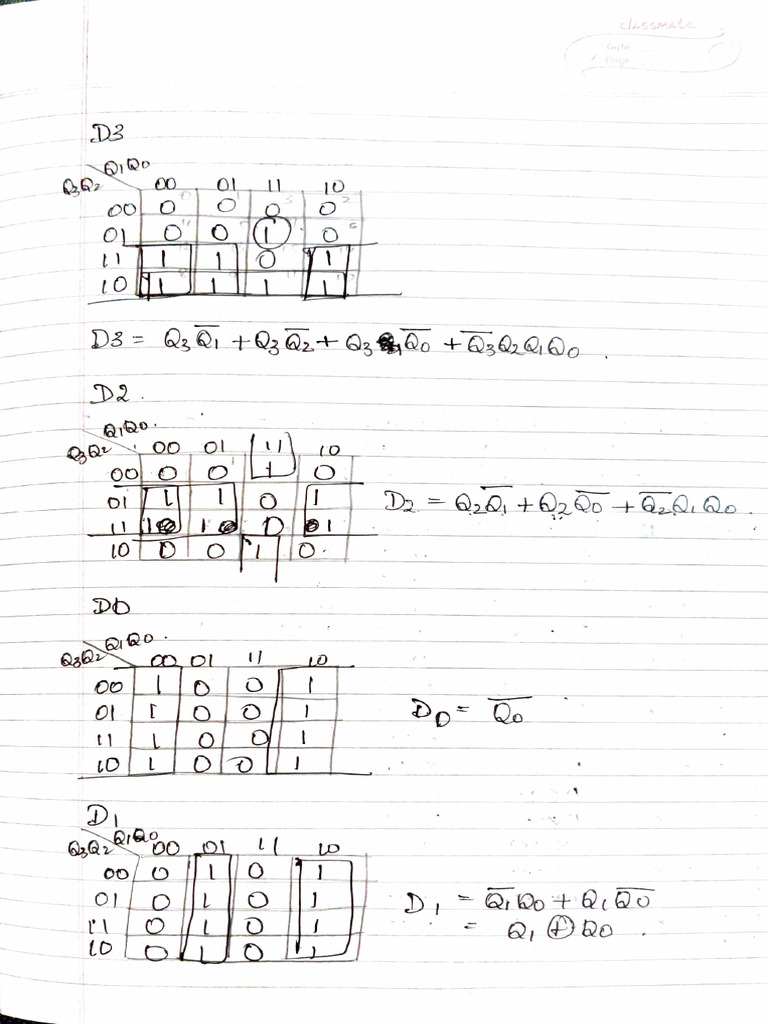 classmate
Date
Page
D3
Q1Q0
Q3Q2 00 01 11 10
00 0 0 0 0
01 0 0 1 0
11 1 1 0 1
10 1 1 1 1
D3 = Q3Q̅1 + Q3Q̅2 + Q3Q̅0 + Q̅3Q2Q1Q0 .
D2 .
Q1Q0.
Q3Q2 00 01 11 10
00 0 0 1 0
01 1 1 0 1
11 1 1 0 1
10 0 0 1 0.
D2 = Q2Q̅1 + Q2Q̅0 + Q̅2Q1Q0 .
D0
Q1Q0 .
Q3Q2 00 01 11 10
00 1 0 0 1
01 1 0 0 1
11 1 0 0 1
10 1 0 0 1
D0 = Q̅0
D1
Q1Q0
Q3Q2 00 01 11 10
00 0 1 0 1
01 0 1 0 1
11 0 1 0 1
10 0 1 0 1
D1 = Q̅1Q0 + Q1Q̅0
= Q1 ⊕ Q0 .